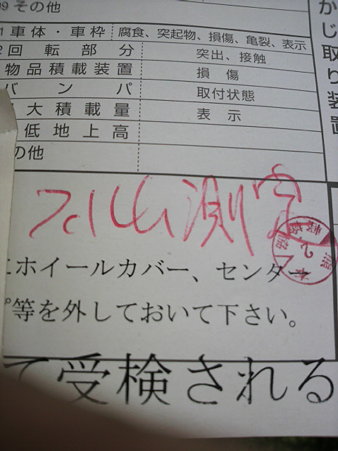 09 その他
1 車体・車枠 腐食、突起物、損傷、亀裂、表示
2 回転部分 突出、接触
物品積載装置 損傷
バンパ 取付状態
大積載量 表示
低地上高
の他
かじ取り装置
フィルム測定
にホイールカバー、センター
プ等を外しておいて下さい。
て受検される